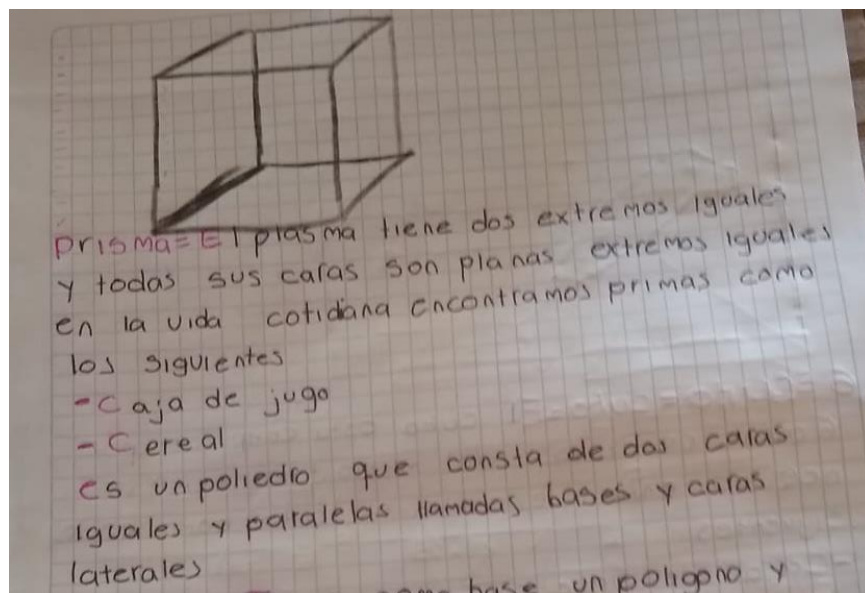 Prisma= El plasma tiene dos extremos iguales
y todas sus caras son planas extremos iguales
en la vida cotidana encontramos primas como
los siguientes
- Caja de jugo
- Cereal
es un poliedro que consta de dos caras
iguales y paralelas llamadas bases y caras
laterales
base un poligono y